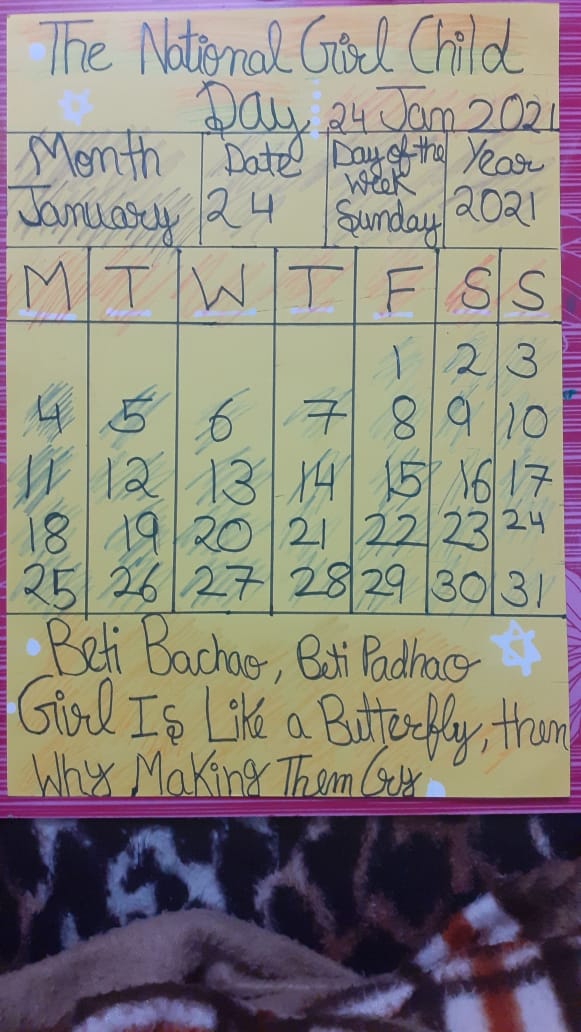 The National Girl Child
Day 24 Jan 2021
Month Date Day of the Week Year
January 24 Sunday 2021
M T W T F S S
1 2 3
4 5 6 7 8 9 10
11 12 13 14 15 16 17
18 19 20 21 22 23 24
25 26 27 28 29 30 31
Beti Bachao, Beti Padhao
Girl Is Like a Butterfly, then
Why Making Them Cry